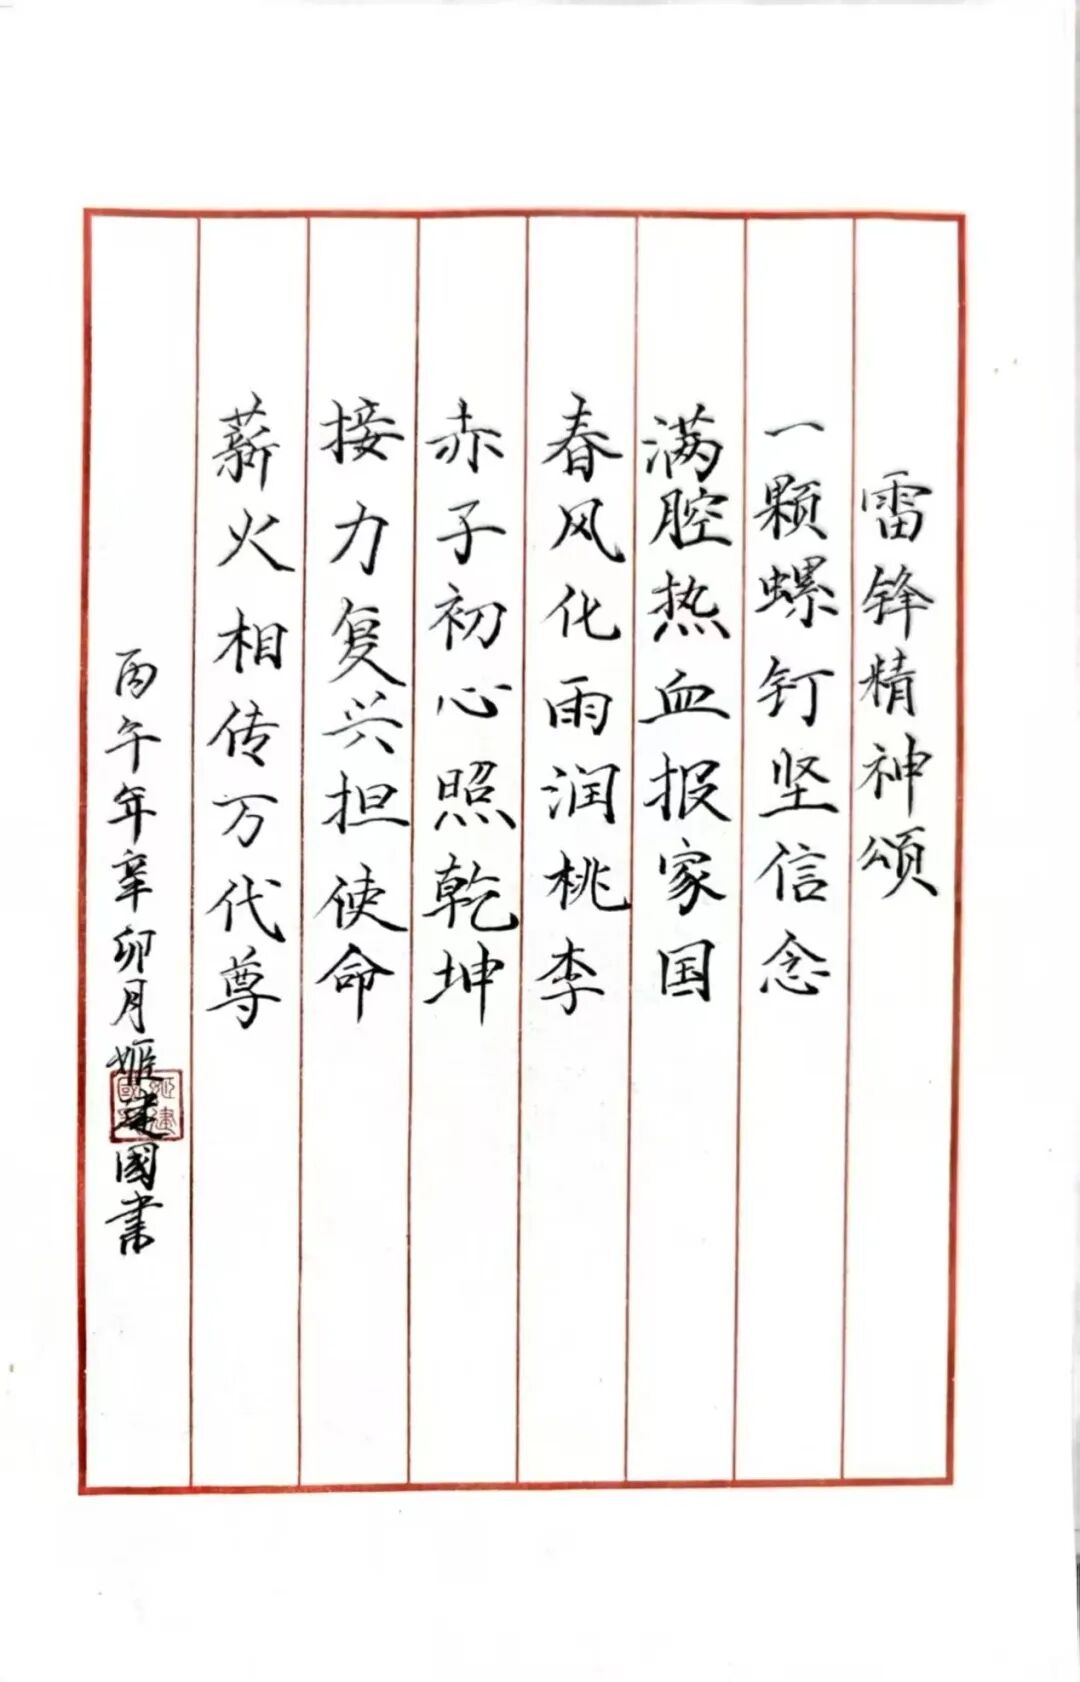 雷锋精神颂
一颗螺钉坚信念
满腔热血报家国
春风化雨润桃李
赤子初心照乾坤
接力复兴担使命
薪火相传万代尊
丙午年辛卯月姬建國书